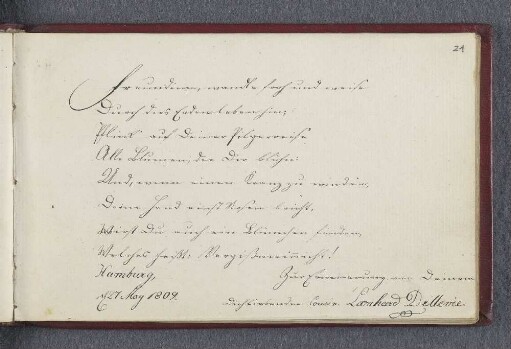 24
Freundinn, wandle froh und weise
Durch das Erdenleben hin;
Pflück auf Deiner Pilgerreise
Alle Blumen, die Dir blühn:
Und, wenn einen Kranz zu winden,
Deine Hand einst Rosen bricht,
Wirst Du auch ein Blümchen finden,
Welches heißt: Vergißmeinnicht!
Hamburg, Zur Erinnerung an Deinen
27 May 1809. Leonhard De Meuve